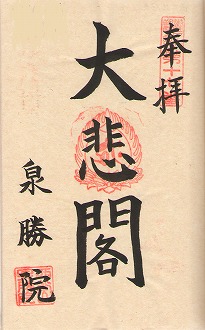 奉拝
大悲閣
泉勝院